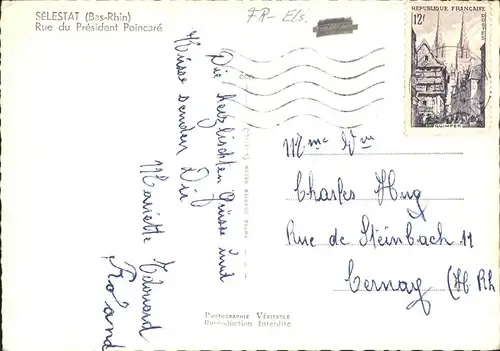 SÉLESTAT (Bas-Rhin)
Rue du Président Poincaré
FR-Els.
RÉPUBLIQUE FRANÇAISE
12f
POSTES
QUIMPER
Die herzlischten Grüsse und
Küsse senden Dir
Mariette Edouard
Mme Vve
Charles Hug
Rue de Steinbach 11
Cernay (H Rh
PHOTOGRAPHIE VÉRITABLE
Reproduction Interdite